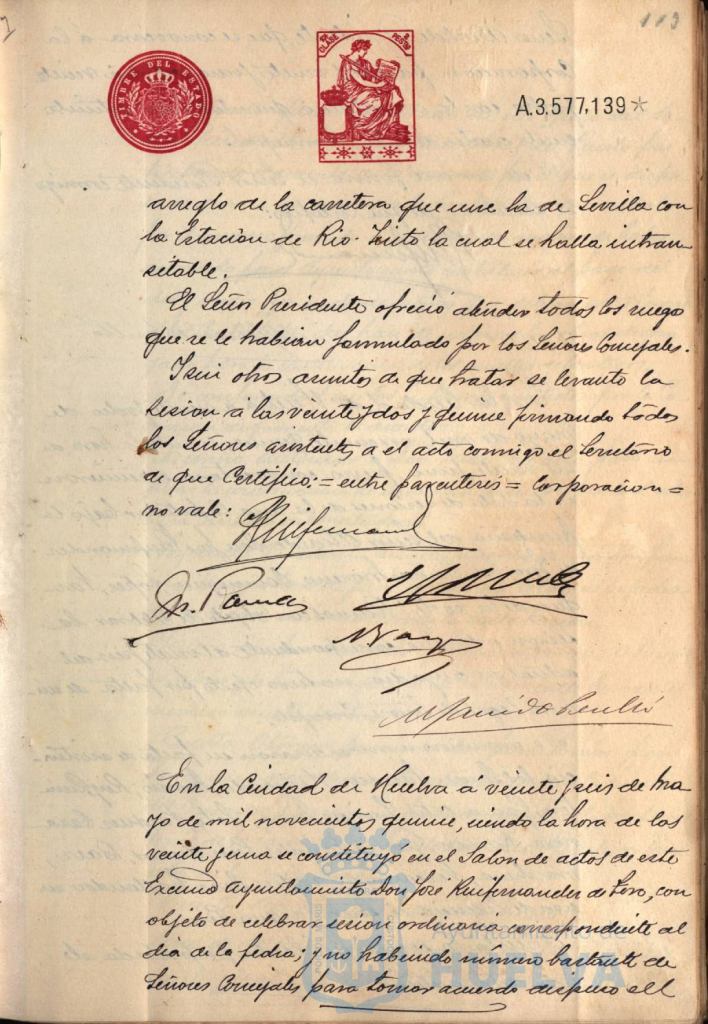 113
TIMBRE DEL ESTADO
CLASE
A.3,577,139*
arreglo de la carretera que une la de Sevilla con
la Estación de Rio-Tinto la cual se halla intran
sitable.
El Señor Presidente ofreció atender todos los ruegos
que se le habian formulado por los Señores Concejales.
I sin otros asuntos de que tratar se levanto la
sesion á las veinte y dos y quince firmando todos
los Señores asistentes a el acto conmigo el Secretario
de que Certifico:= entre parentesis = Corporacion =
no vale:
En la Ciudad de Huelva á veinte y seis de Ma
yo de mil novecientos quince, siendo la hora de las
veinte y una se constituyó en el Salon de actos de este
Excmo Ayuntamiento Don José Ruifernandez de Toro, con
objeto de celebrar sesion ordinaria correspondiente al
dia de la fecha; y no habiendo número bastante de
Señores Concejales para tomar acuerdo dispuso el
Ayuntamiento de
HUELVA